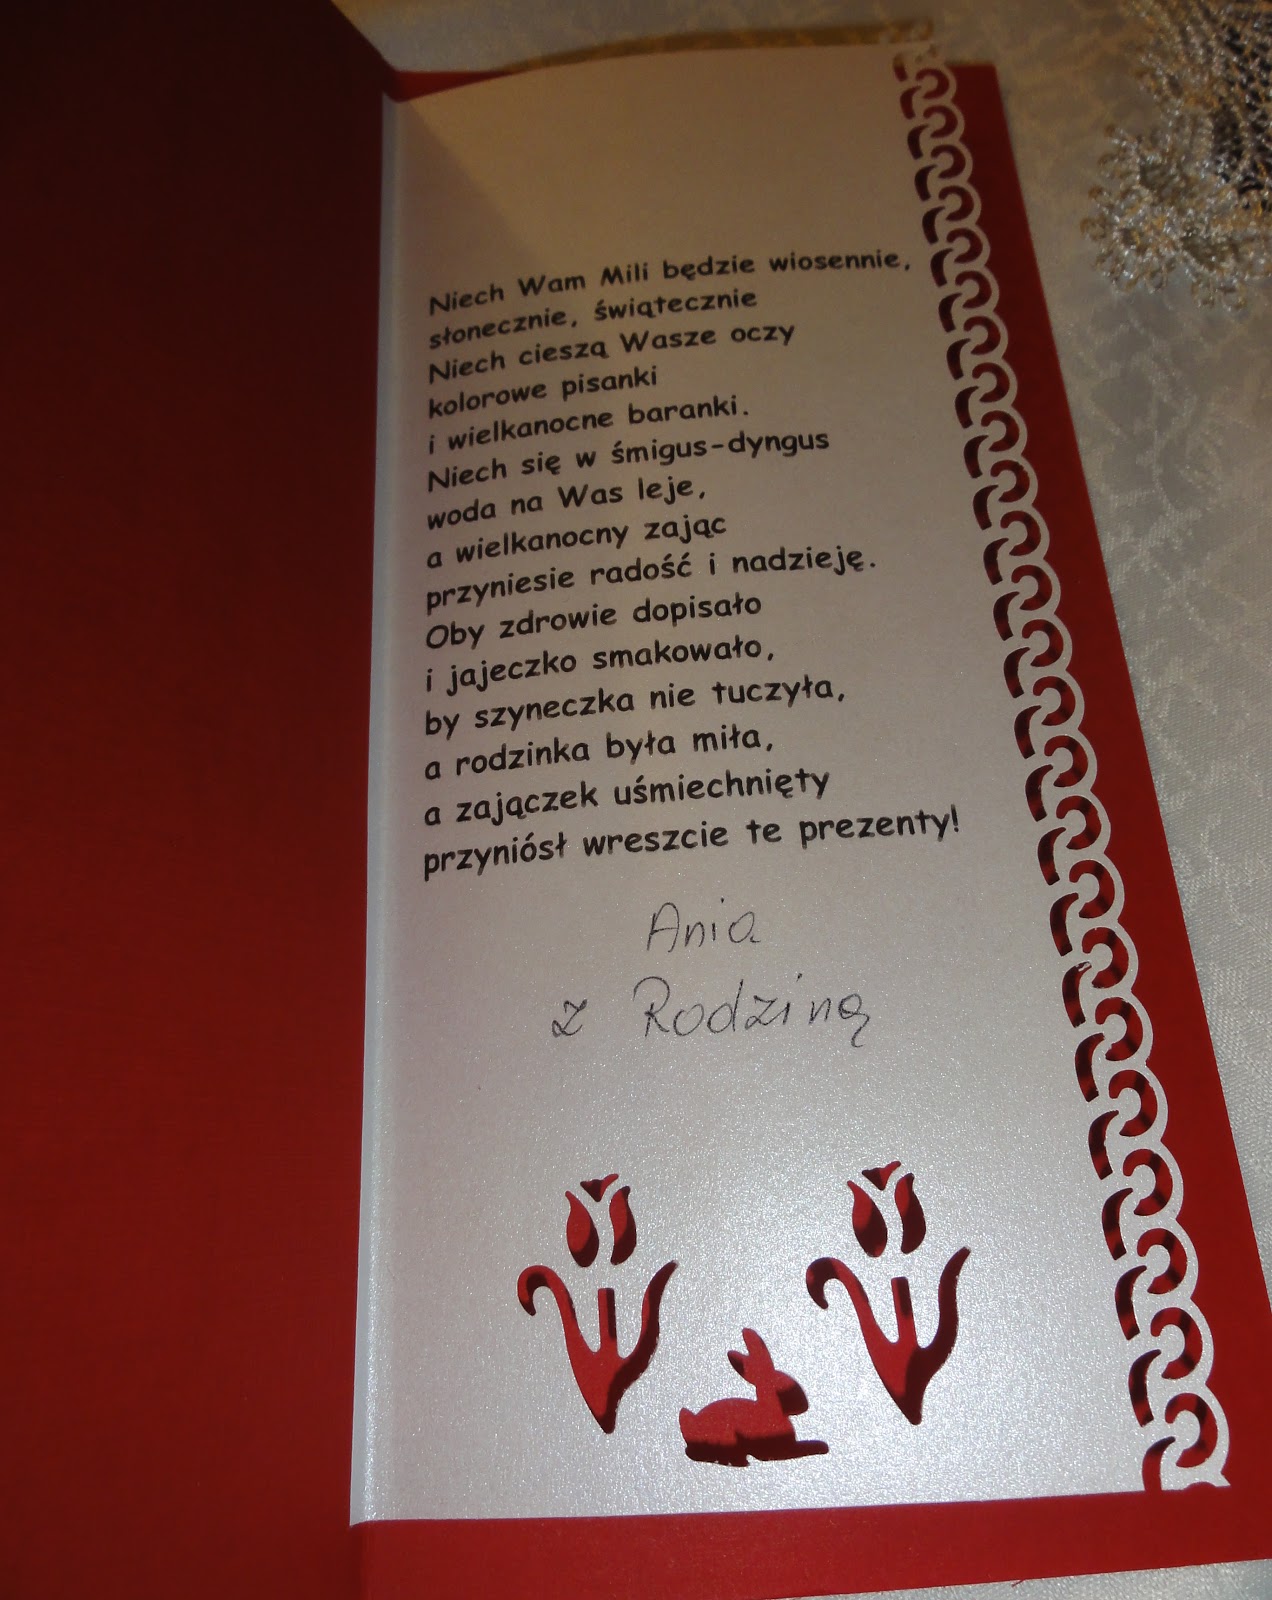 Niech Wam Mili będzie wiosennie,
słonecznie, świątecznie
Niech cieszą Wasze oczy
kolorowe pisanki
i wielkanocne baranki.
Niech się w śmigus-dyngus
woda na Was leje,
a wielkanocny zając
przyniesie radość i nadzieję.
Oby zdrowie dopisało
i jajeczko smakowało,
by szyneczka nie tuczyła,
a rodzinka była miła,
a zajączek uśmiechnięty
przyniósł wreszcie te prezenty!
Ania
z Rodziną